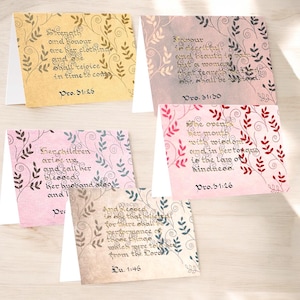 Strength
and honour
are her clothing
and she
shall rejoice
in time to come.
Pro. 31:25
Favour
is deceitful
and beauty is
a woman
Pro. 31:30
She opens
her mouth
with wisdom
and in her tongue
is the law of
kindness.
Pro. 31:26
Her children
arise up,
and call her
blessed;
her husband also
and he
Pro. 31
And blessed
is she that believed
for there shall be
performance of
those things
which were told
from the Lord.
Lu. 1:45